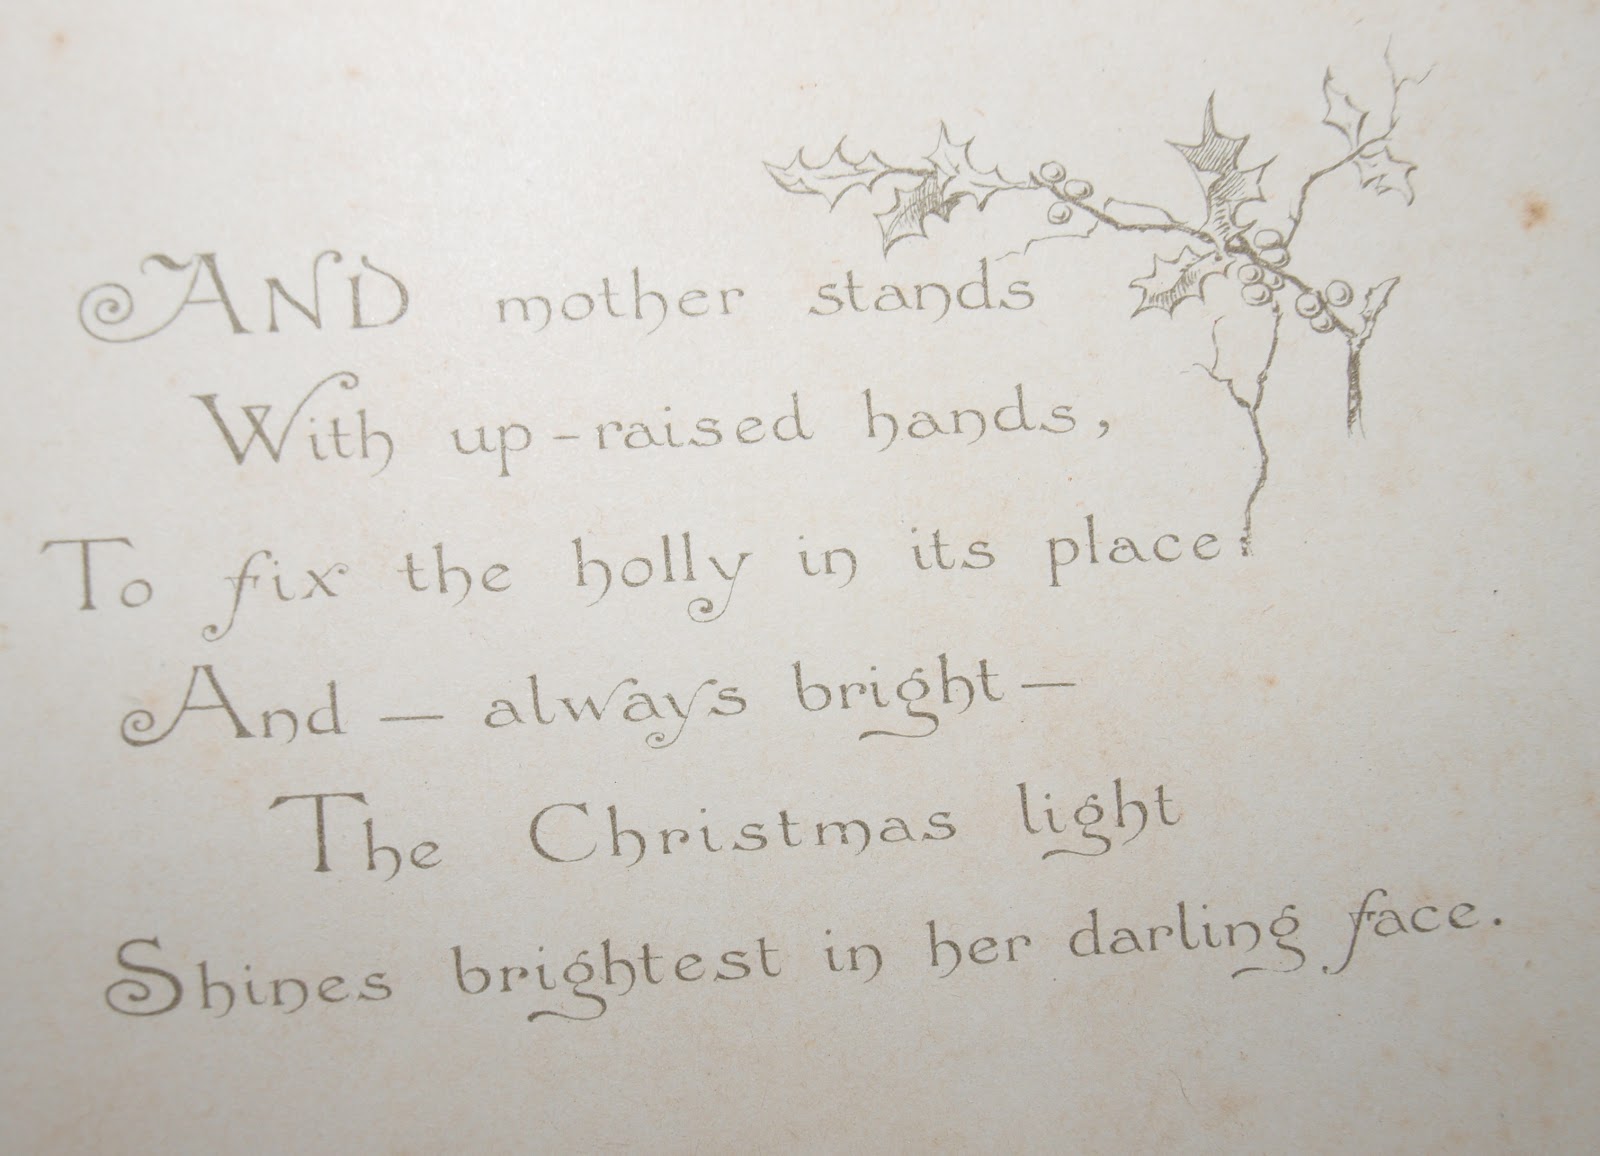 AND mother stands
With up-raised hands,
To fix the holly in its place.
And — always bright —
The Christmas light
Shines brightest in her darling face.